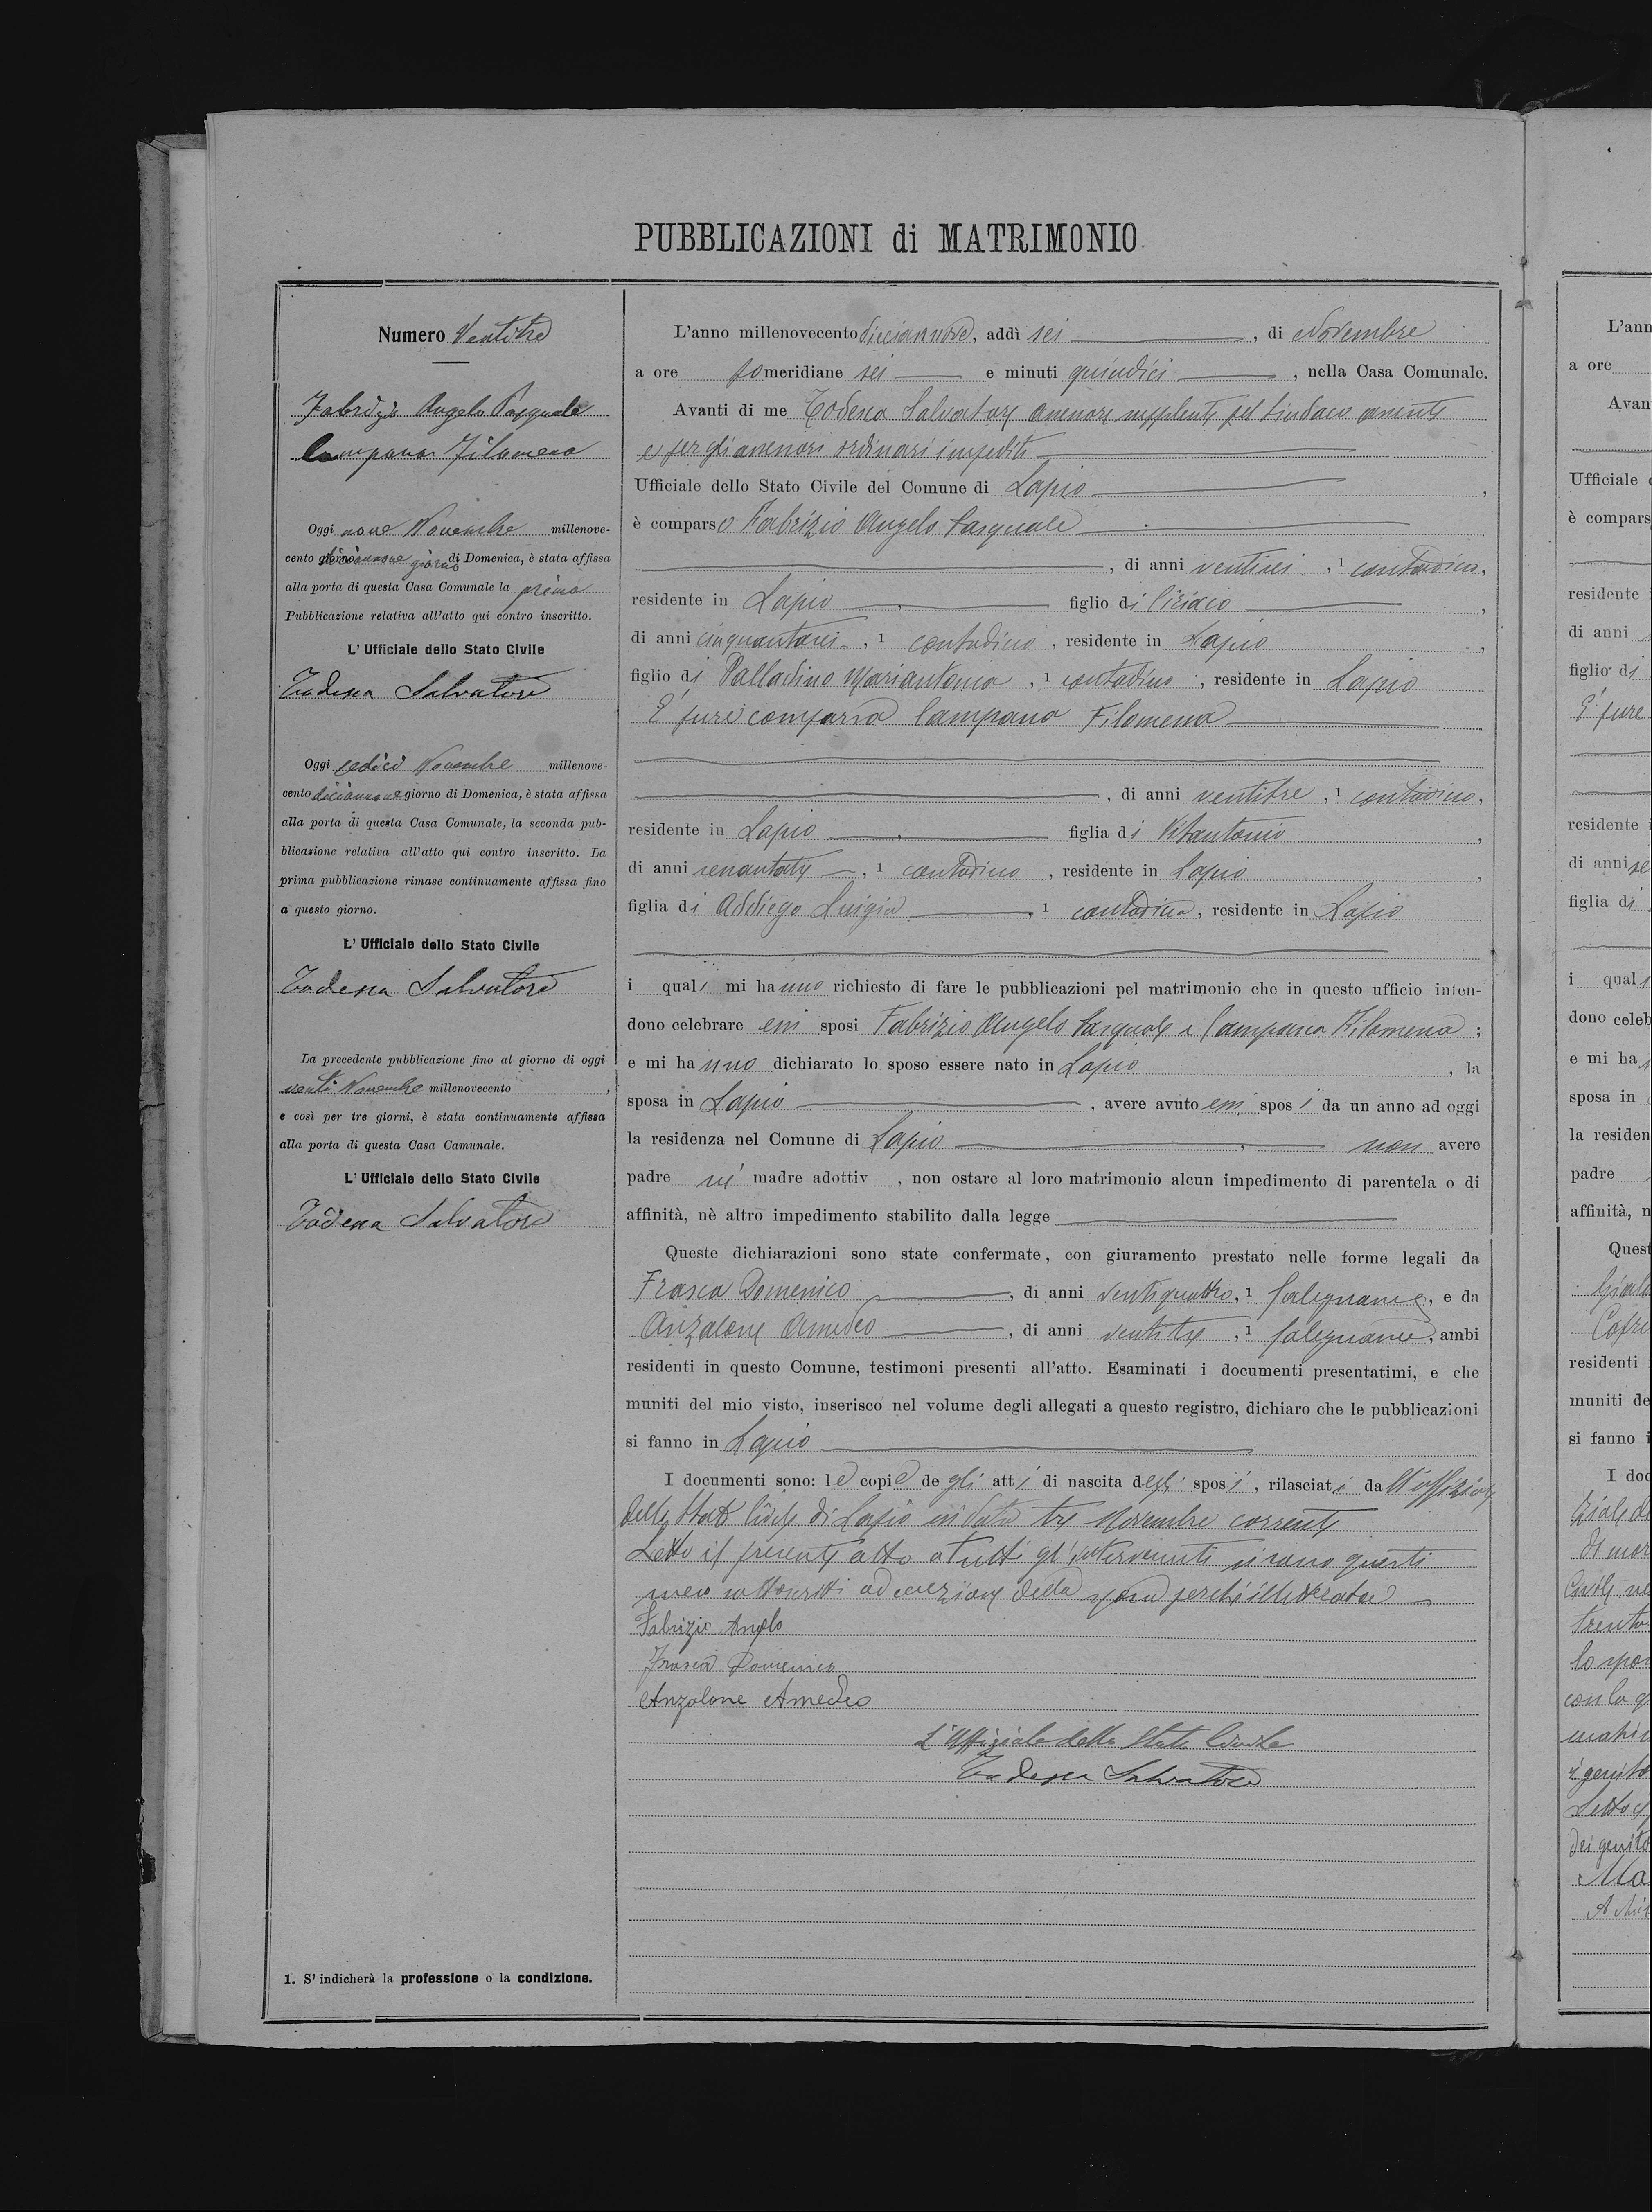 PUBBLICAZIONI di MATRIMONIO
Numero Ventitre
Fabrizio Angelo Pasquale
Campana Filomena
Oggi nove Novembre millenove-
cento diciannove giorno di Domenica, è stata affissa
alla porta di questa Casa Comunale la prima
Pubblicazione relativa all'atto qui contro inscritto.
L'Ufficiale dello Stato Civile
Todesca Salvatore
Oggi sedici Novembre millenove-
cento diciannove giorno di Domenica, è stata affissa
alla porta di questa Casa Comunale, la seconda pub-
blicazione relativa all'atto qui contro inscritto. La
prima pubblicazione rimase continuamente affissa fino
a questo giorno.
L'Ufficiale dello Stato Civile
Todesca Salvatore
La precedente pubblicazione fino al giorno di oggi
venti Novembre millenovecento ,
e così per tre giorni, è stata continuamente affissa
alla porta di questa Casa Camunale.
L'Ufficiale dello Stato Civile
Todesca Salvatore
1. S'indicherà la professione o la condizione.
L'anno millenovecento diciannove, addì sei , di Novembre
a ore pomeridiane sei e minuti quindici , nella Casa Comunale.
Avanti di me Todesca Salvatore assessore supplente pel Sindaco assente
e per gli assessori ordinari impediti
Ufficiale dello Stato Civile del Comune di Lapio ,
è comparso Fabrizio Angelo Pasquale
, di anni ventisei , 1 contadino,
residente in Lapio figlio di Ciriaco ,
di anni cinquantasei , 1 contadino , residente in Lapio ,
figlio di Palladino Mariantonia , 1 contadina , residente in Lapio
È pure comparsa Campana Filomena
, di anni ventitre , 1 contadina,
residente in Lapio figlia di Vitantonio ,
di anni sessantatre , 1 contadino , residente in Lapio ,
figlia di Addiego Luigia , 1 contadina, residente in Lapio
i quali mi hanno richiesto di fare le pubblicazioni pel matrimonio che in questo ufficio inten-
dono celebrare essi sposi Fabrizio Angelo Pasquale e Campana Filomena ;
e mi hanno dichiarato lo sposo essere nato in Lapio , la
sposa in Lapio , avere avuto essi sposi da un anno ad oggi
la residenza nel Comune di Lapio , non avere
padre nè madre adottiv , non ostare al loro matrimonio alcun impedimento di parentela o di
affinità, nè altro impedimento stabilito dalla legge
Queste dichiarazioni sono state confermate, con giuramento prestato nelle forme legali da
Frasca Domenico , di anni ventiquattro, 1 falegname, e da
Anzalone Amedeo , di anni ventitre , 1 falegname, ambi
residenti in questo Comune, testimoni presenti all'atto. Esaminati i documenti presentatimi, e che
muniti del mio visto, inserisco nel volume degli allegati a questo registro, dichiaro che le pubblicazioni
si fanno in Lapio
I documenti sono: le copie degli atti di nascita degli sposi, rilasciati da
dello Stato Civile di Lapio in data tre Novembre corrente
Letto il presente atto a tutti gl'intervenuti si sono questi
meco sottoscritti ad eccezione della sposa perchè illetterata
Fabrizio Angelo
Frasca Domenico
Anzalone Amedeo
L'Uffiziale dello Stato Civile
Todesca Salvatore
L'ann
a ore
Avan
Ufficiale
è compars
residente
di anni
figlio di
È pure
residente
di anni se
figlia di
i quali
dono celeb
e mi ha
sposa in
la residen
padre
affinità, n
Quest
residenti
muniti de
si fanno i
I doc
di mor
trento
lo spo
con la q
i genito
dei genito
Ma